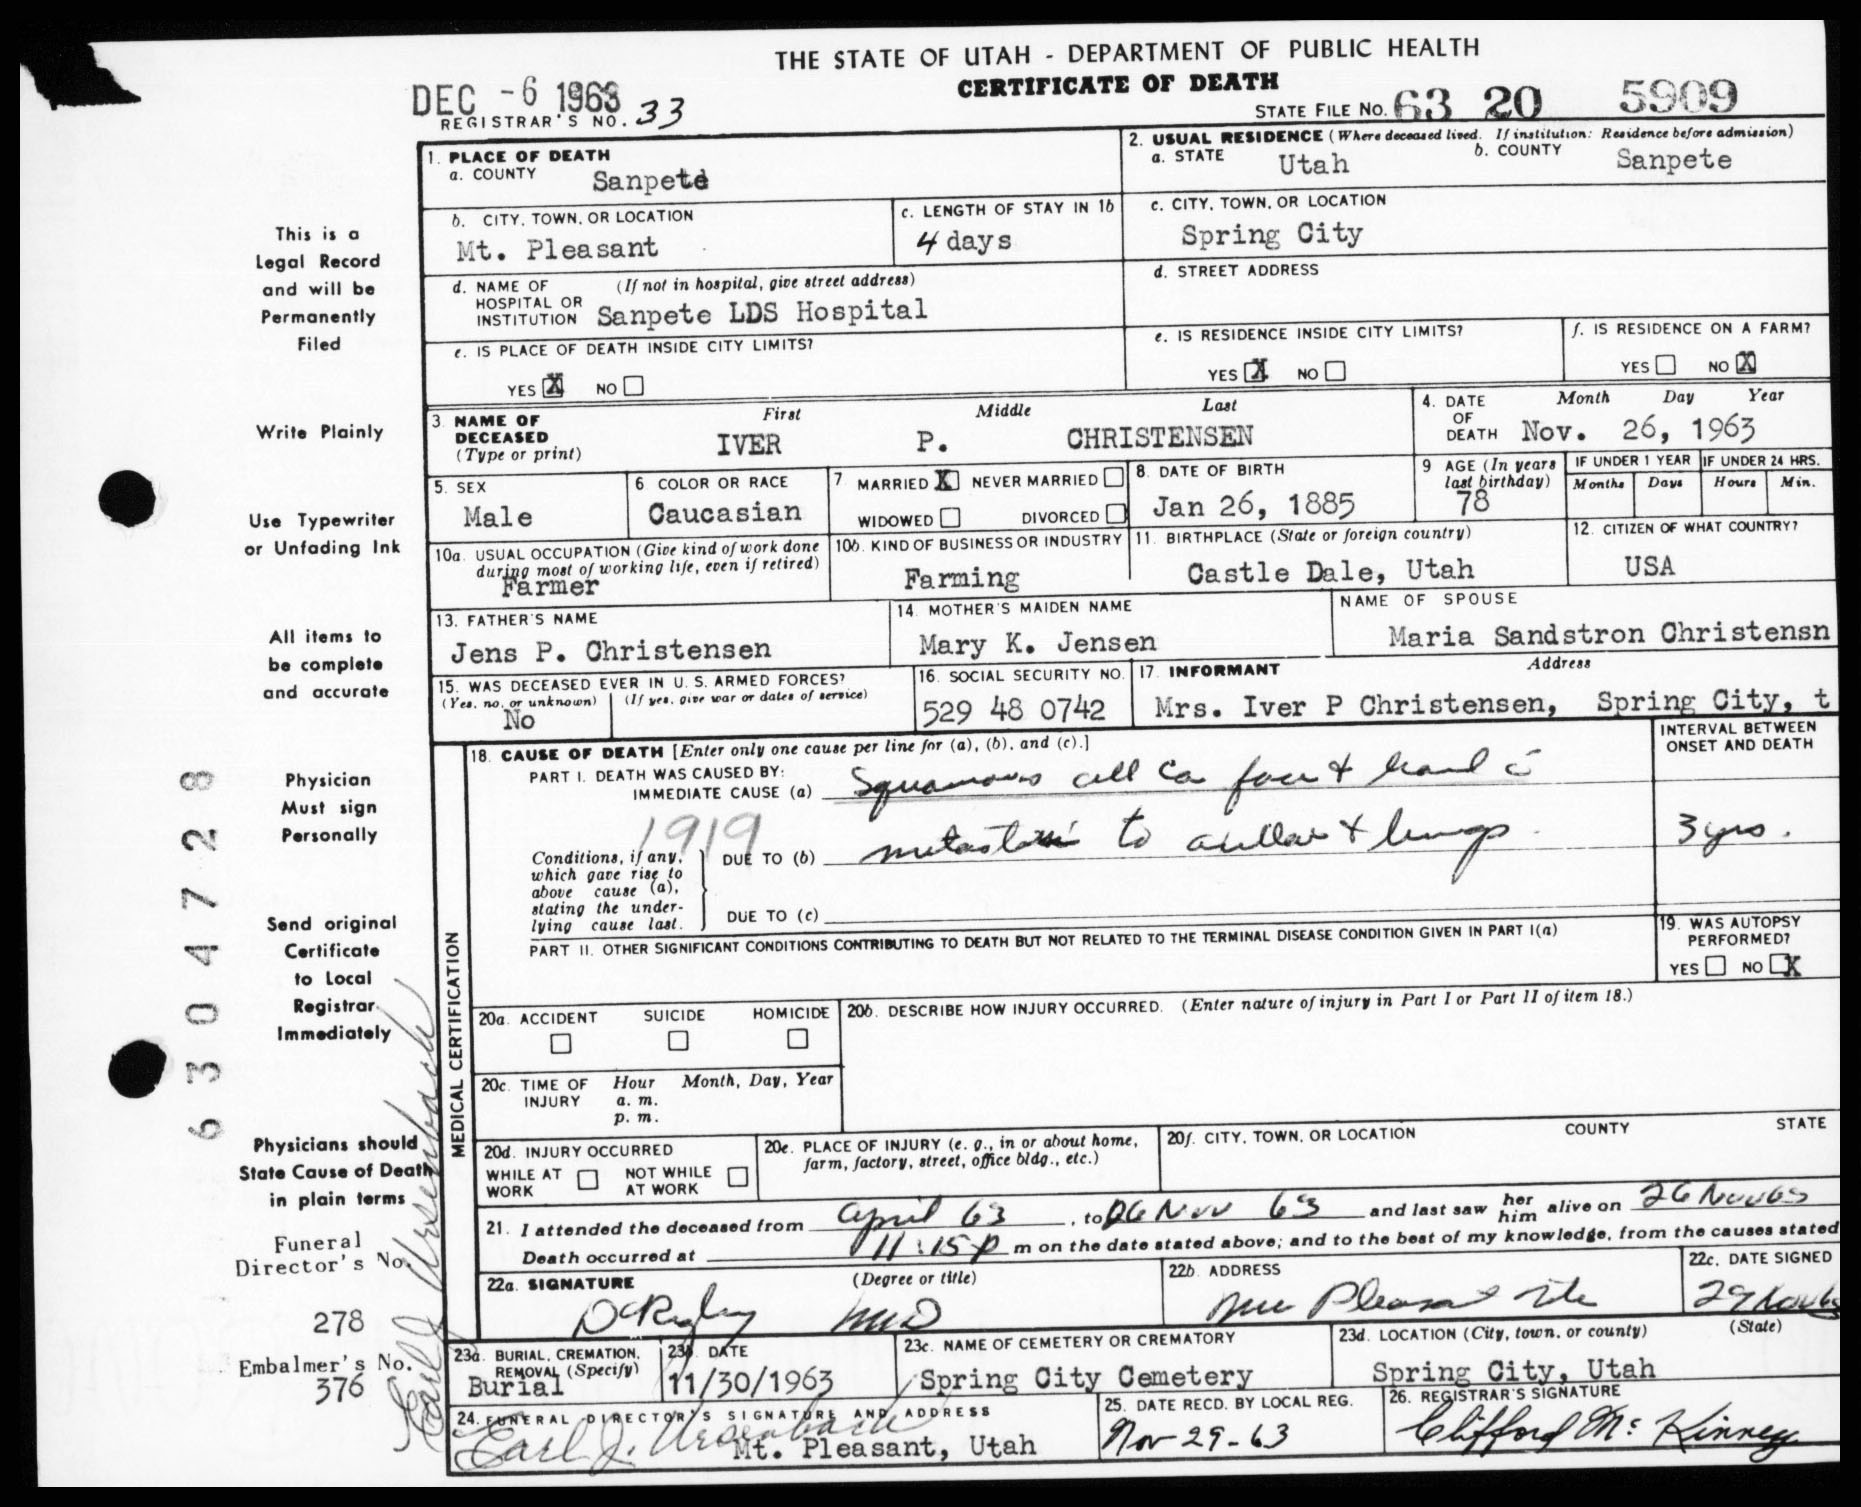 THE STATE OF UTAH - DEPARTMENT OF PUBLIC HEALTH
CERTIFICATE OF DEATH
DEC -6 1963
REGISTRAR'S NO. 33
STATE FILE NO. 63 20 5909
1. PLACE OF DEATH
a. COUNTY Sanpete
2. USUAL RESIDENCE (Where deceased lived. If institution: Residence before admission)
a. STATE Utah b. COUNTY Sanpete
b. CITY, TOWN, OR LOCATION
Mt. Pleasant
c. LENGTH OF STAY IN 1b
4 days
c. CITY, TOWN, OR LOCATION
Spring City
d. NAME OF HOSPITAL OR INSTITUTION (If not in hospital, give street address)
Sanpete LDS Hospital
d. STREET ADDRESS
e. IS PLACE OF DEATH INSIDE CITY LIMITS?
YES X NO
e. IS RESIDENCE INSIDE CITY LIMITS?
YES X NO
f. IS RESIDENCE ON A FARM?
YES NO X
3. NAME OF DECEASED (Type or print)
First Middle Last
IVER P. CHRISTENSEN
4. DATE OF DEATH Month Day Year
Nov. 26, 1963
5. SEX
Male
6. COLOR OR RACE
Caucasian
7 MARRIED X NEVER MARRIED
WIDOWED DIVORCED
8. DATE OF BIRTH
Jan 26, 1885
9 AGE (In years last birthday)
78
IF UNDER 1 YEAR
Months Days
IF UNDER 24 HRS.
Hours Min.
10a. USUAL OCCUPATION (Give kind of work done during most of working life, even if retired)
Farmer
10b. KIND OF BUSINESS OR INDUSTRY
Farming
11. BIRTHPLACE (State or foreign country)
Castle Dale, Utah
12. CITIZEN OF WHAT COUNTRY?
USA
13. FATHER'S NAME
Jens P. Christensen
14. MOTHER'S MAIDEN NAME
Mary K. Jensen
NAME OF SPOUSE
Maria Sandstron Christensn
15. WAS DECEASED EVER IN U. S. ARMED FORCES?
(Yes, no, or unknown) (If yes, give war or dates of service)
No
16. SOCIAL SECURITY NO.
529 48 0742
17. INFORMANT Address
Mrs. Iver P Christensen, Spring City, t
MEDICAL CERTIFICATION
18. CAUSE OF DEATH [Enter only one cause per line for (a), (b), and (c).]
INTERVAL BETWEEN ONSET AND DEATH
PART I. DEATH WAS CAUSED BY:
IMMEDIATE CAUSE (a) Squamous cell Ca face & hand c̄
1919
Conditions, if any, which gave rise to above cause (a), stating the underlying cause last.
DUE TO (b) metastasis to axillar & lungs
3 yrs.
DUE TO (c)
PART II. OTHER SIGNIFICANT CONDITIONS CONTRIBUTING TO DEATH BUT NOT RELATED TO THE TERMINAL DISEASE CONDITION GIVEN IN PART I(a)
19. WAS AUTOPSY PERFORMED?
YES NO X
20a. ACCIDENT SUICIDE HOMICIDE
20b. DESCRIBE HOW INJURY OCCURRED. (Enter nature of injury in Part I or Part II of item 18.)
20c. TIME OF INJURY Hour Month, Day, Year
a. m.
p. m.
20d. INJURY OCCURRED
WHILE AT WORK NOT WHILE AT WORK
20e. PLACE OF INJURY (e. g., in or about home, farm, factory, street, office bldg., etc.)
20f. CITY, TOWN, OR LOCATION COUNTY STATE
21. I attended the deceased from April 63, to 26 Nov 63 and last saw her him alive on 26 Nov 63
Death occurred at 11:15 p m on the date stated above; and to the best of my knowledge, from the causes stated
22a. SIGNATURE (Degree or title)
MD
22b. ADDRESS
Pleasant
22c. DATE SIGNED
29 Nov 63
23a. BURIAL, CREMATION, REMOVAL (Specify)
Burial
23b. DATE
11/30/1963
23c. NAME OF CEMETERY OR CREMATORY
Spring City Cemetery
23d. LOCATION (City, town, or county) (State)
Spring City, Utah
24. FUNERAL DIRECTOR'S SIGNATURE AND ADDRESS
Earl J. Ursenbach
Mt. Pleasant, Utah
25. DATE RECD. BY LOCAL REG.
Nov-29-63
26. REGISTRAR'S SIGNATURE
Clifford Mc Kinney
This is a
Legal Record
and will be
Permanently
Filed
Write Plainly
Use Typewriter
or Unfading Ink
All items to
be complete
and accurate
Physician
Must sign
Personally
Send original
Certificate
to Local
Registrar
Immediately
Physicians should
State Cause of Death
in plain terms
Funeral
Director's No.
278
Embalmer's No.
376
6304728
Earl J Ursenbach